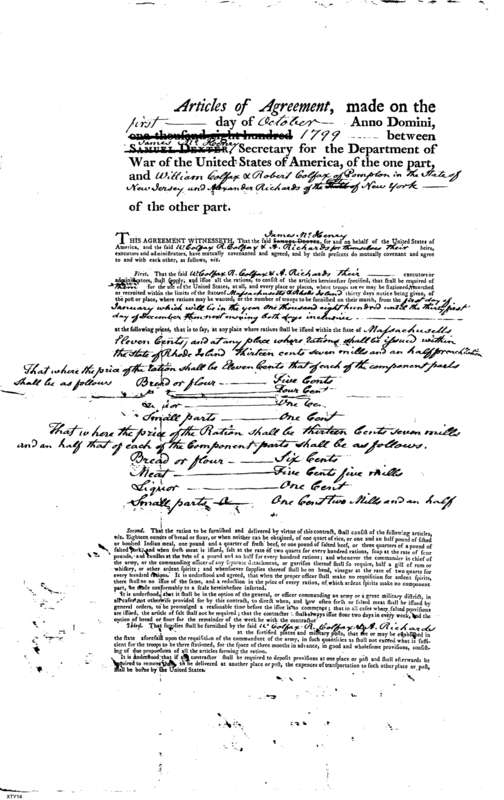 Articles of Agreement, made on the
first day of October Anno Domini,
one thousand eight hundred 1799 between
James McHenry
SAMUEL DEXTER, Secretary for the Department of
War of the United States of America, of the one part,
and William Colfax & Robert Colfax of Pompton in the State of
New Jersey and Alexander Richards of the State of New York
of the other part.
James McHenry
THIS AGREEMENT WITNESSETH, That the said SAMUEL DEXTER, for and on behalf of the United States of
America, and the said W Colfax R. Colfax & A. Richards for themselves their heirs,
executors and administrators, have mutually covenanted and agreed, and by these presents do mutually covenant and agree
to and with each other, as follows, viz.
First. That the said W Colfax R. Colfax & A. Richards their executors or
administrators, shall supply, and issue all the rations, to consist of the articles hereinafter specified, that shall be required of
them for the use of the United States, at all, and every place or places, where troops are or may be stationed, marched
or recruited within the limits of the States of Massachusetts & Rhode Island thirty days notice being given, of
the post or place, where rations may be wanted, or the number of troops to be furnished on their march, from the first day of
January which will be in the year one thousand eight hundred until the thirty first
day of December
both days inclusive
at the following prices, that is to say, at any place where rations shall be issued within the State of Massachusetts
Eleven Cents, and at any place where rations shall be issued within
the State of Rhode Island thirteen cents seven mills and an half for each ration
That where the price of the ration shall be Eleven Cents that of each of the component parts
shall be as follows Bread or flour — Five Cents
Four Cent
Liquor — One Cent
Small parts — One Cent
That where the price of the Ration shall be thirteen Cents seven mills
and an half that of each of the Component parts shall be as follows.
Bread or flour — Six Cents
Meat — Five Cents five mills
Liquor — One Cent
Small parts — One Cent two Mills and an half
Second. That the ration to be furnished and delivered by virtue of this contract, shall consist of the following articles,
viz. Eighteen ounces of bread or flour, or when neither can be obtained, of one quart of rice, or one and an half pound of sifted
or boulted Indian meal, one pound and a quarter of fresh beef, or one pound of salted beef, or three quarters of a pound of
salted pork, and when fresh meat is issued, salt at the rate of two quarts for every hundred rations, soap at the rate of four
pounds, and candles at the rate of a pound and an half for every hundred rations; and whenever the commander in chief of
the army, or the commanding officer of any separate detachment, or garrison thereof shall so require, half a gill of rum or
whiskey, or other ardent spirits; and whensoever supplies thereof shall be on hand, vinegar at the rate of two quarts for
every hundred rations. It is understood and agreed, that when the proper officer shall make no requisition for ardent spirits,
there shall be no issue of the same, and a reduction in the price of every ration, of which ardent spirits make no component
part, be made conformably to a scale hereinbefore inserted.
It is understood, that it shall be in the option of the general, or officer commanding an army or a great military district, in
all cases not otherwise provided for by this contract, to direct when, and how often fresh or salted meat shall be issued by
general orders, to be promulged a reasonable time before the issue is to commence; that in all cases where salted provisions
are issued, the article of salt shall not be required; that the contractor shall always issue flour two days in every week, and the
option of bread or flour for the remainder of the week be with the contractor
Third. That supplies shall be furnished by the said W Colfax R. Colfax & A. Richards
at the fortified places and military posts, that are or may be established in
the state aforesaid upon the requisition of the commandant of the army, in such quantities as shall not exceed what is sufficient
for the troops to be there stationed, for the space of three months in advance, in good and wholesome provisions, consisting
of due proportions of all the articles forming the ration.
It is understood that if the contractor shall be required to deposit provisions at one place or post and shall afterwards be
required to remove them, to be delivered at another place or post, the expences of transportation to such other place or post,
shall be borne by the United States.
XTY14